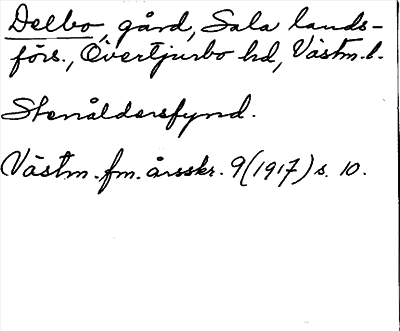 Delbo, gård, Sala lands-
förs., Övertjurbo hd, Västm. l.
Stenåldersfynd.
Västm. fm. årsskr. 9 (1917) s. 10.